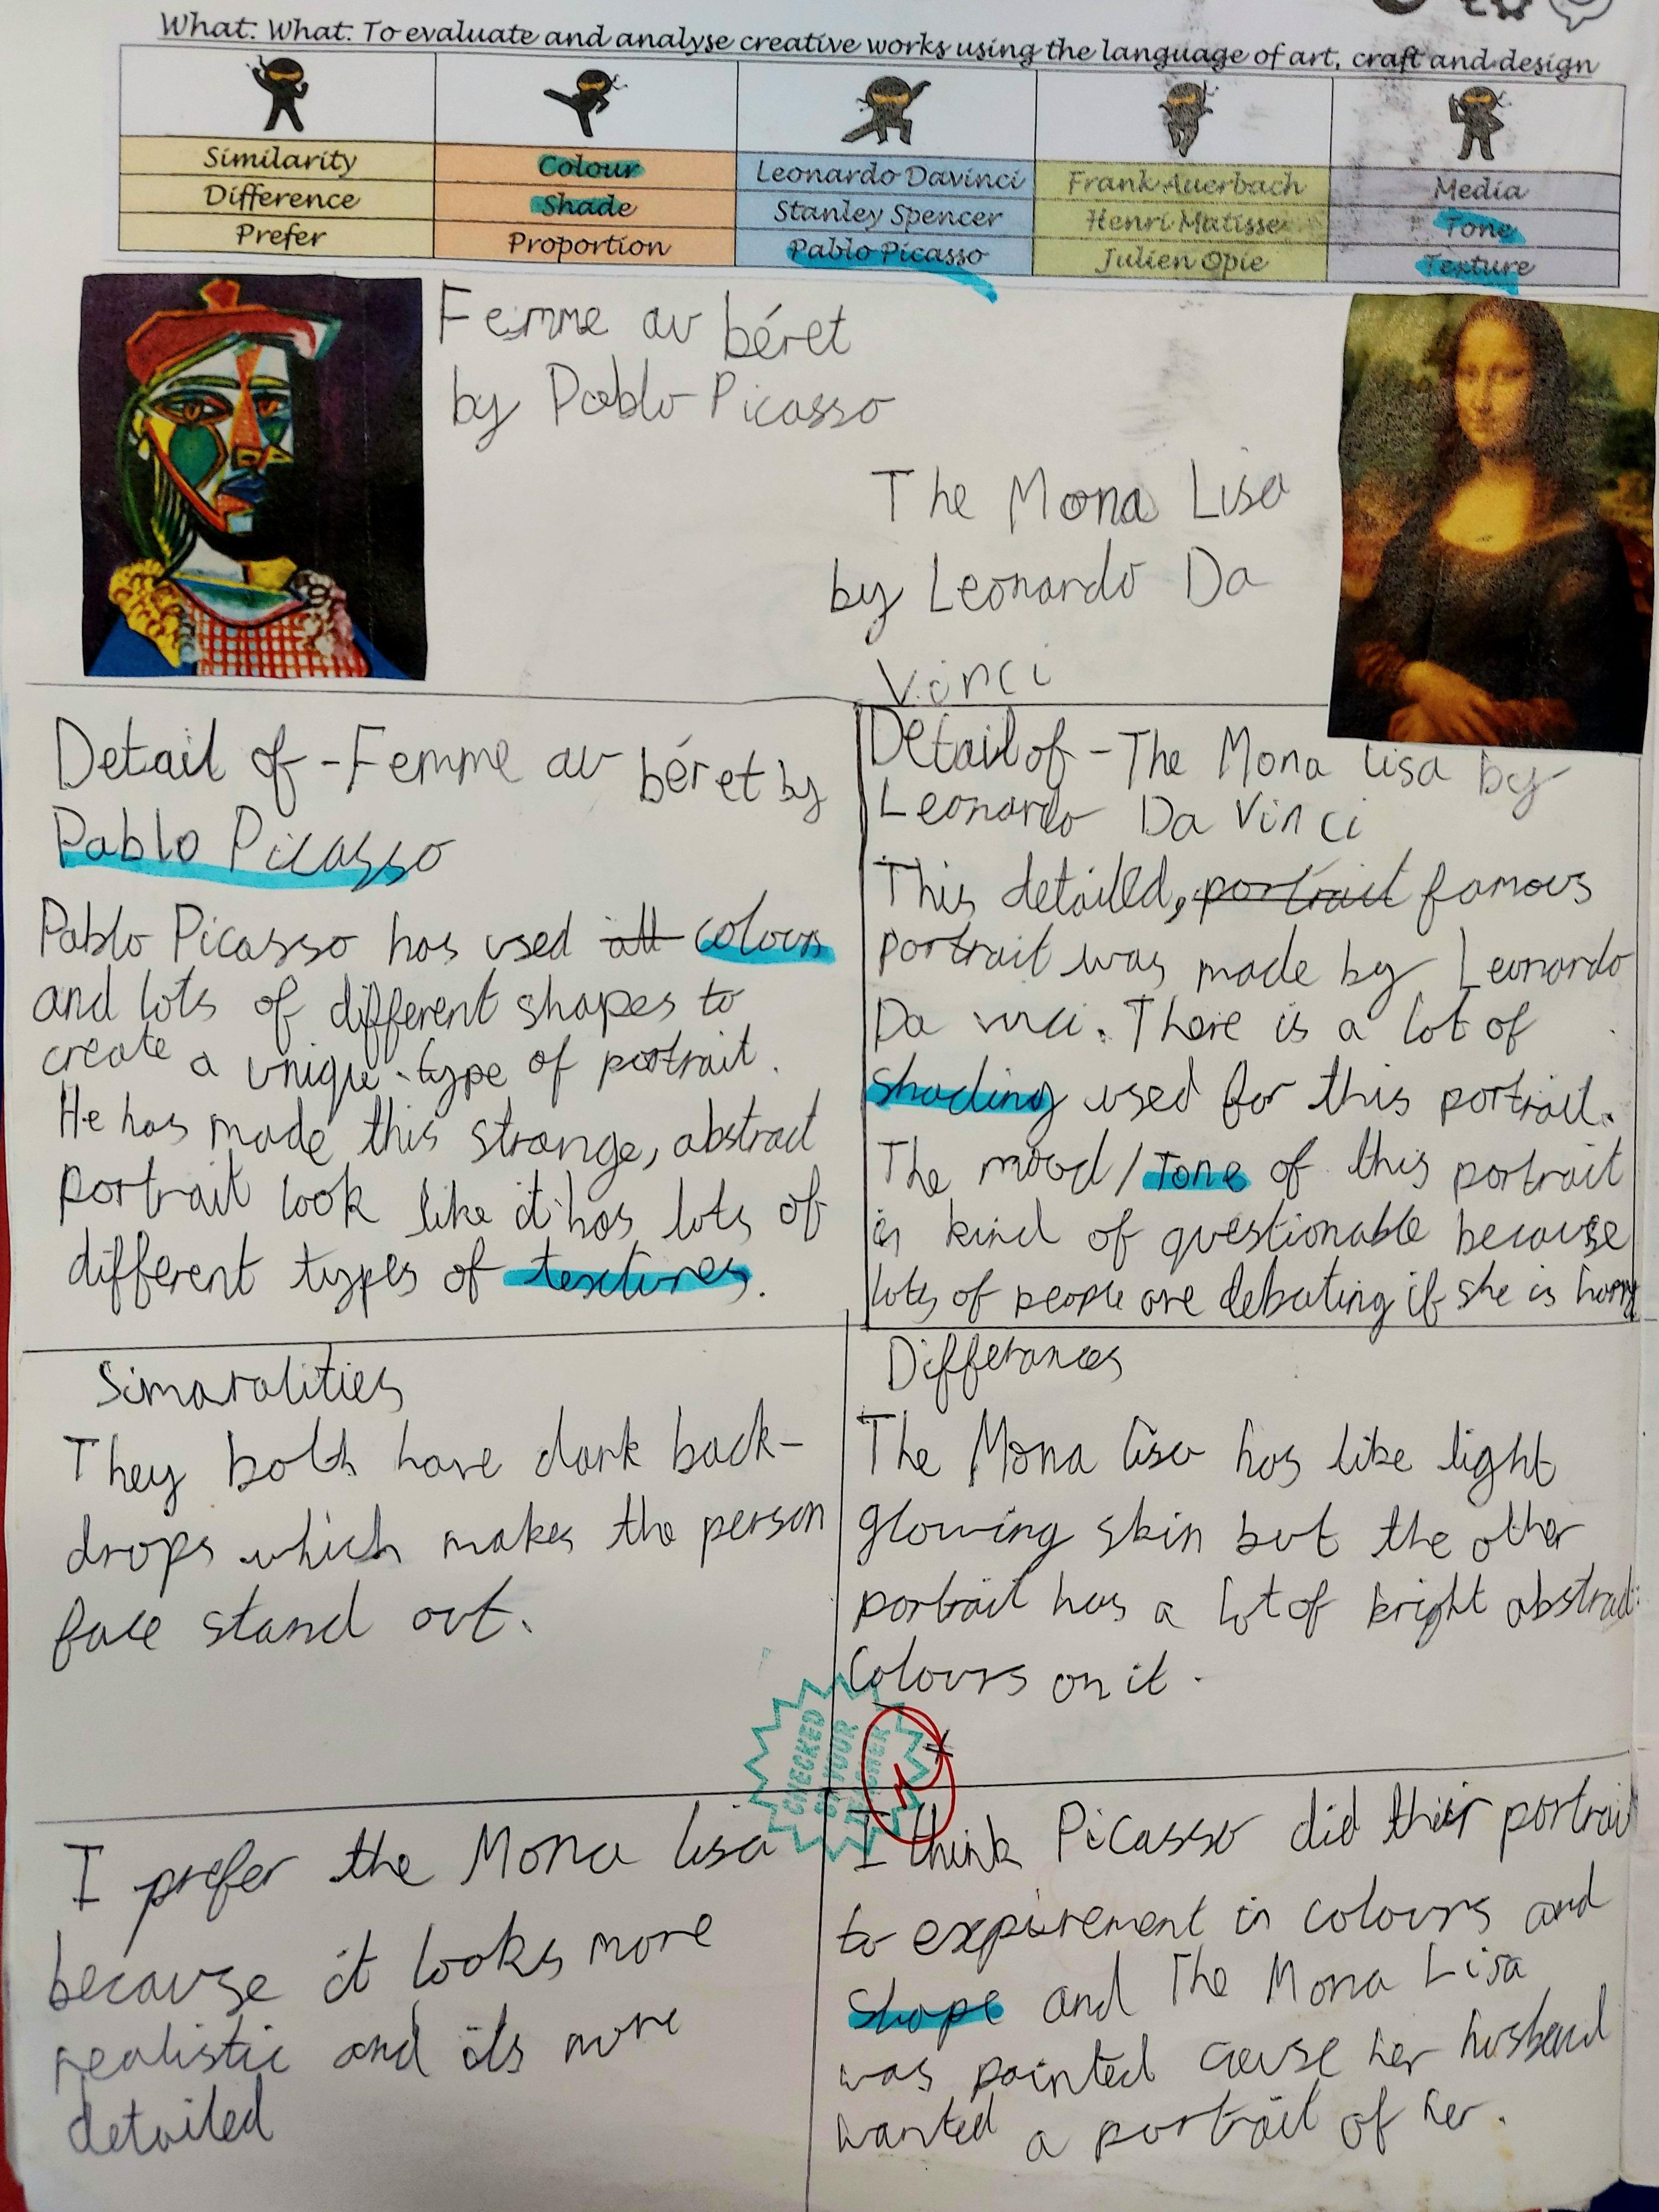 What: What: To evaluate and analyse creative works using the language of art, craft and design
Similarity Colour Leonardo Davinci Frank Auerbach Media
Difference Shade Stanley Spencer Henri Matisse Tone
Prefer Proportion Pablo Picasso Julien Opie Texture
Femme au béret
by Pablo Picasso
The Mona Lisa
by Leonardo Da
Vinci
Detail of - Femme au béret by
Pablo Picasso
Pablo Picasso has used all colours
and lots of different shapes to
create a unique type of portrait.
He has made this strange, abstract
portrait look like it has lots of
different types of textures.
Detail of - The Mona Lisa by
Leonardo Da Vinci
This detailed, portrait famous
portrait was made by Leonardo
Da vinci. There is a lot of
shading used for this portrait.
The mood/Tone of this portrait
is kind of questionable because
lots of people are debating if she is happy
Simaralities
They both have dark back-
drops which makes the person
face stand out.
Differances
The Mona lisa has like light
glowing skin but the other
portrait has a lot of bright abstract
Colours on it.
CHECKED
BY YOUR
TEACHER
I prefer the Mona lisa
because it looks more
realistic and it's more
detailed
I think Picasso did their portrait
to expirement in colours and
shape and The Mona Lisa
was painted cause her husband
wanted a portrait of her.